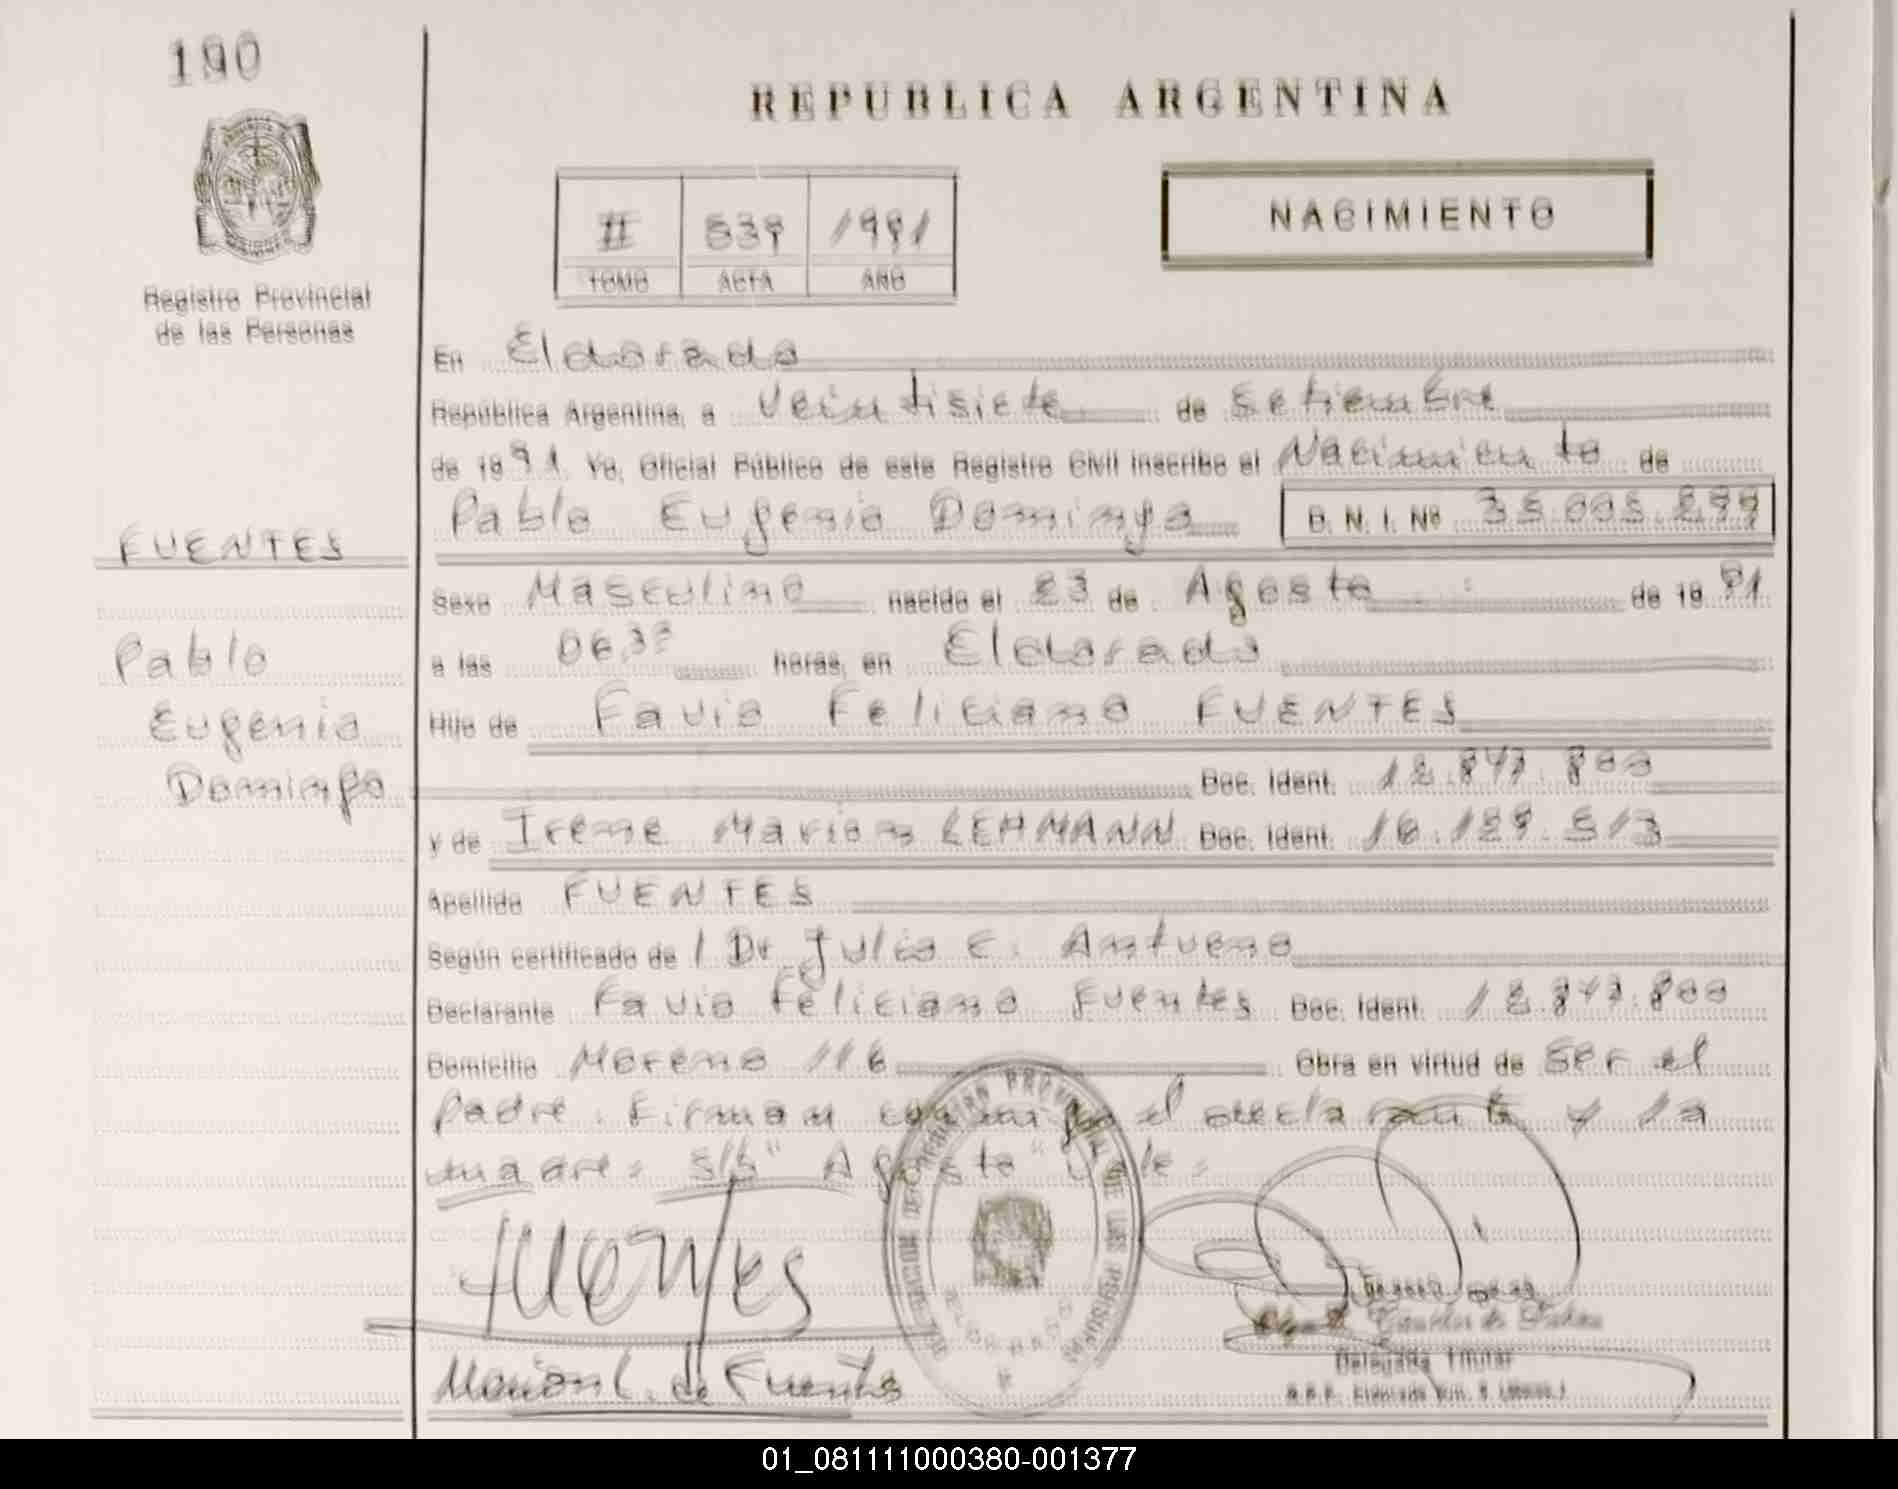 190
REPUBLICA ARGENTINA
NACIMIENTO
II 539 1991
TOMO ACTA AÑO
Registro Provincial
de las Personas
En Eldorado
República Argentina, a Veintisiete de Setiembre
de 1991 Yo, Oficial Público de este Registro Civil inscribo el Nacimiento de
Pablo Eugenio Domingo D. N. I. Nº
FUENTES
Pablo
Eugenio
Domingo
Sexo Masculino nacido el 23 de Agosto de 1991
a las horas, en Eldorado
Hijo de Favio Feliciano FUENTES
Doc. Ident.
y de Irene Marion LEHMANN Doc. Ident.
Apellido FUENTES
Según certificado de / Dr Julio C. Antueno
Declarante Favio Feliciano Fuentes Doc. Ident.
Domicilio Moreno 116 Obra en virtud de ser el
Padre. Firman conmigo el declarante y la
madre= S/b "Agosto" Vale=
Fuentes
Marion L. de Fuentes
Delegada Titular
01_081111000380-001377